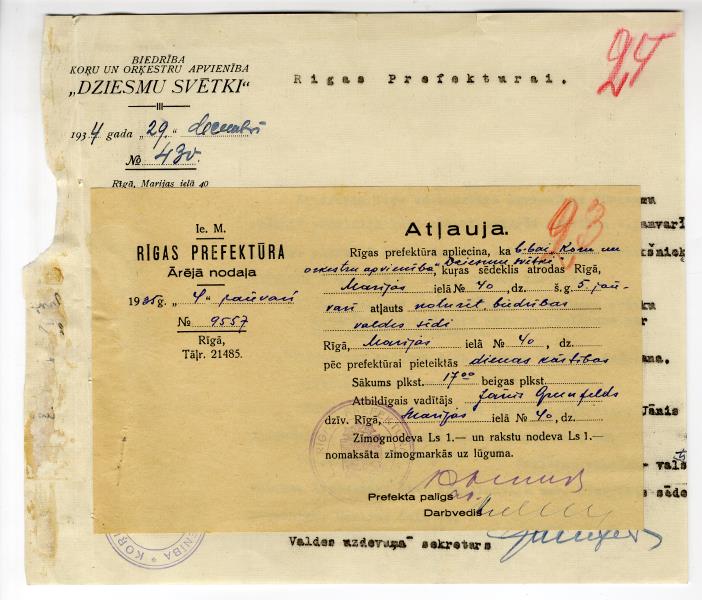 BIEDRĪBA
KOŖU UN ORĶESTRU APVIENĪBA
„DZIESMU SVĒTKI“
1934 gada „29.“ decembrī
№ 430.
Rīgā, Marijas ielā 40
Rīgas Prefektūrai.
94
Ie. M.
RĪGAS PREFEKTŪRA
Ārējā nodaļa
1935g. „4“ janvarī
№ 9557
Rīgā,
Tāļr. 21485.
Atļauja.
93
Rīgas prefektūra apliecina, ka b-bai Koru un
orkestru apvienība „Dziesmu svētki“, kuŗas sēdeklis atrodas Rīgā,
Marijas ielā № 40, dz. š. g. 5 jan-
varī atļauts noturēt biedrības
valdes sēdi
Rīgā, Marijas ielā № 40, dz.
pēc prefektūrai pieteiktās dienas kārtības
Sākums plkst. 17⁰⁰ beigas plkst.
Atbildīgais vadītājs Jānis Grenfelds
dzīv. Rīgā, Marijas ielā № 40, dz.
Zīmognodeva Ls 1.— un rakstu nodeva Ls 1.—
nomaksāta zīmogmarkās uz lūguma.
Prefekta palīgs
Darbvedis
anvarī
ana.
Jānis
vals
sēde
Valdes uzdevumā sekretars